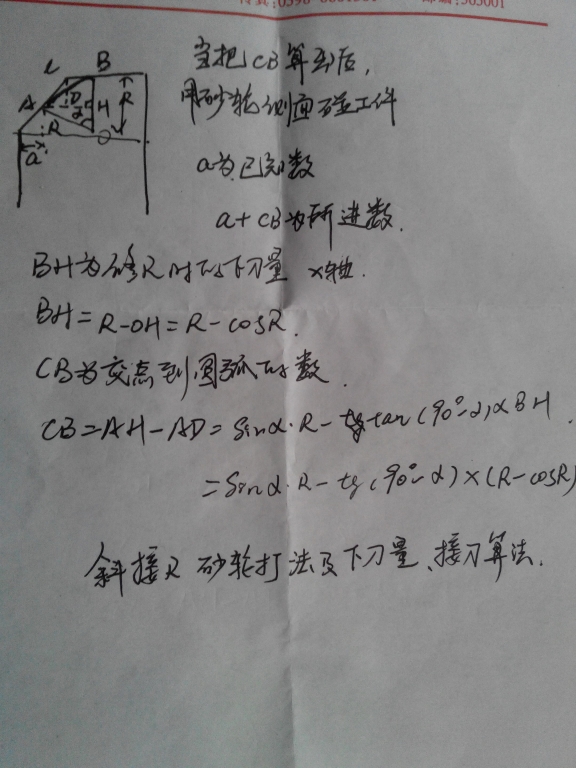 传真:0598-8081581 邮编:365001
当把CB算出后,
用砂轮侧面碰工件
a为已知数
a+CB为所进数.
C B
A D H R
α
R O
a
BH为修R时的下刀量 x轴.
BH=R-OH=R-cosR.
CB为交点到圆弧的数.
CB=AH-AD=Sinα·R-tan(90°-α)×BH.
=Sinα·R-tg(90°-α)×(R-cosR)
斜接R 砂轮打法及下刀量、接刀算法.